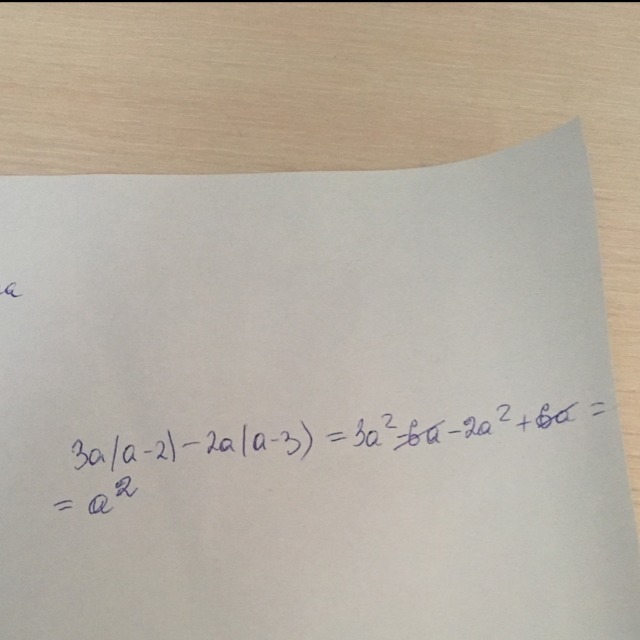 a
3a(a-2)-2a(a-3)=3a²-6a-2a²+6a=
=a²